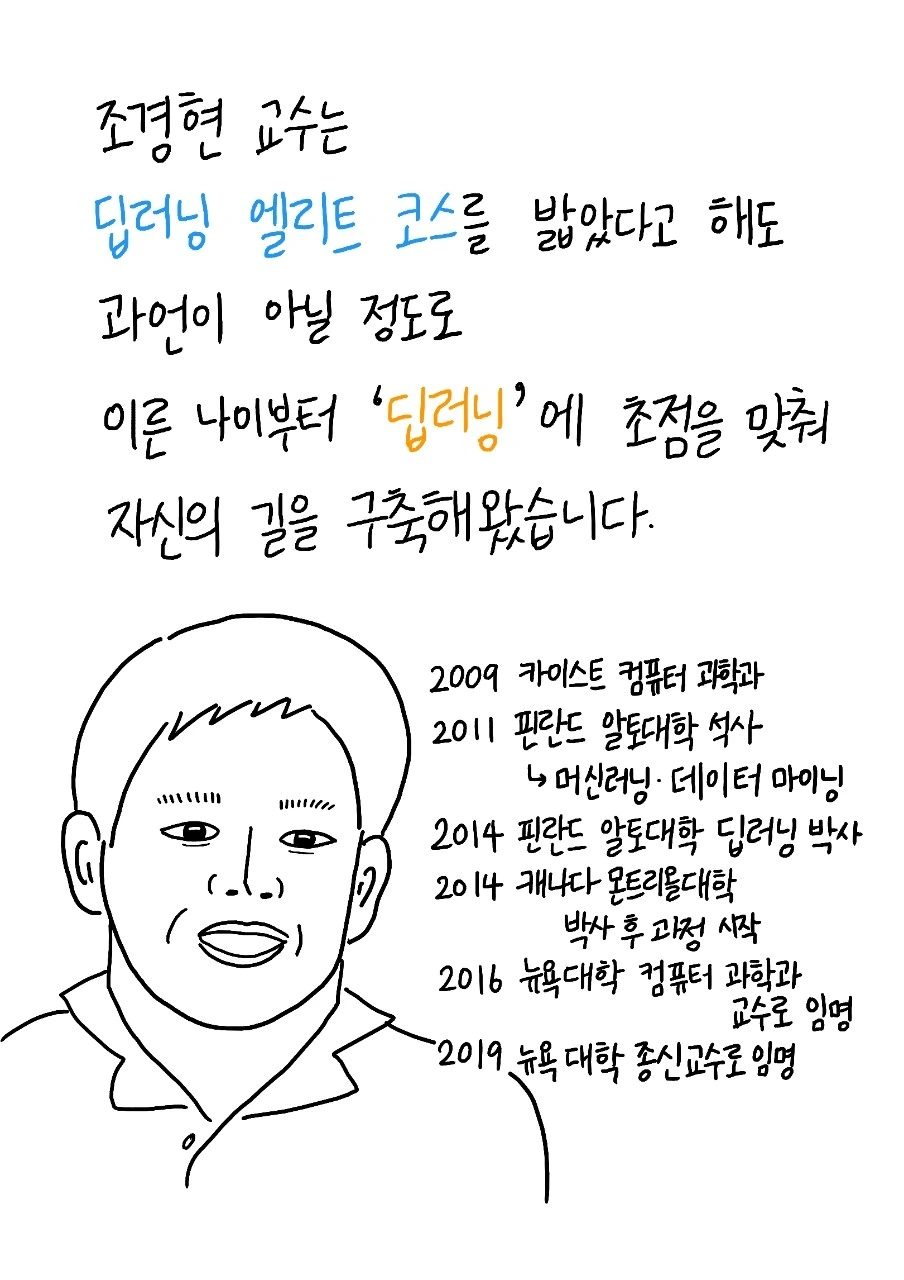 조경현 교수는
딥러닝 엘리트 코스를 밟았다고 해도
과언이 아닐 정도로
이른 나이부터 ‘딥러닝’에 초점을 맞춰
자신의 길을 구축해왔습니다.
2009 카이스트 컴퓨터 과학과
2011 핀란드 알토대학 석사
↳ 머신러닝·데이터 마이닝
2014 핀란드 알토대학 딥러닝 박사
2014 캐나다 몬트리올대학
박사 후 과정 시작
2016 뉴욕대학 컴퓨터 과학과
교수로 임명
2019 뉴욕대학 종신교수로 임명